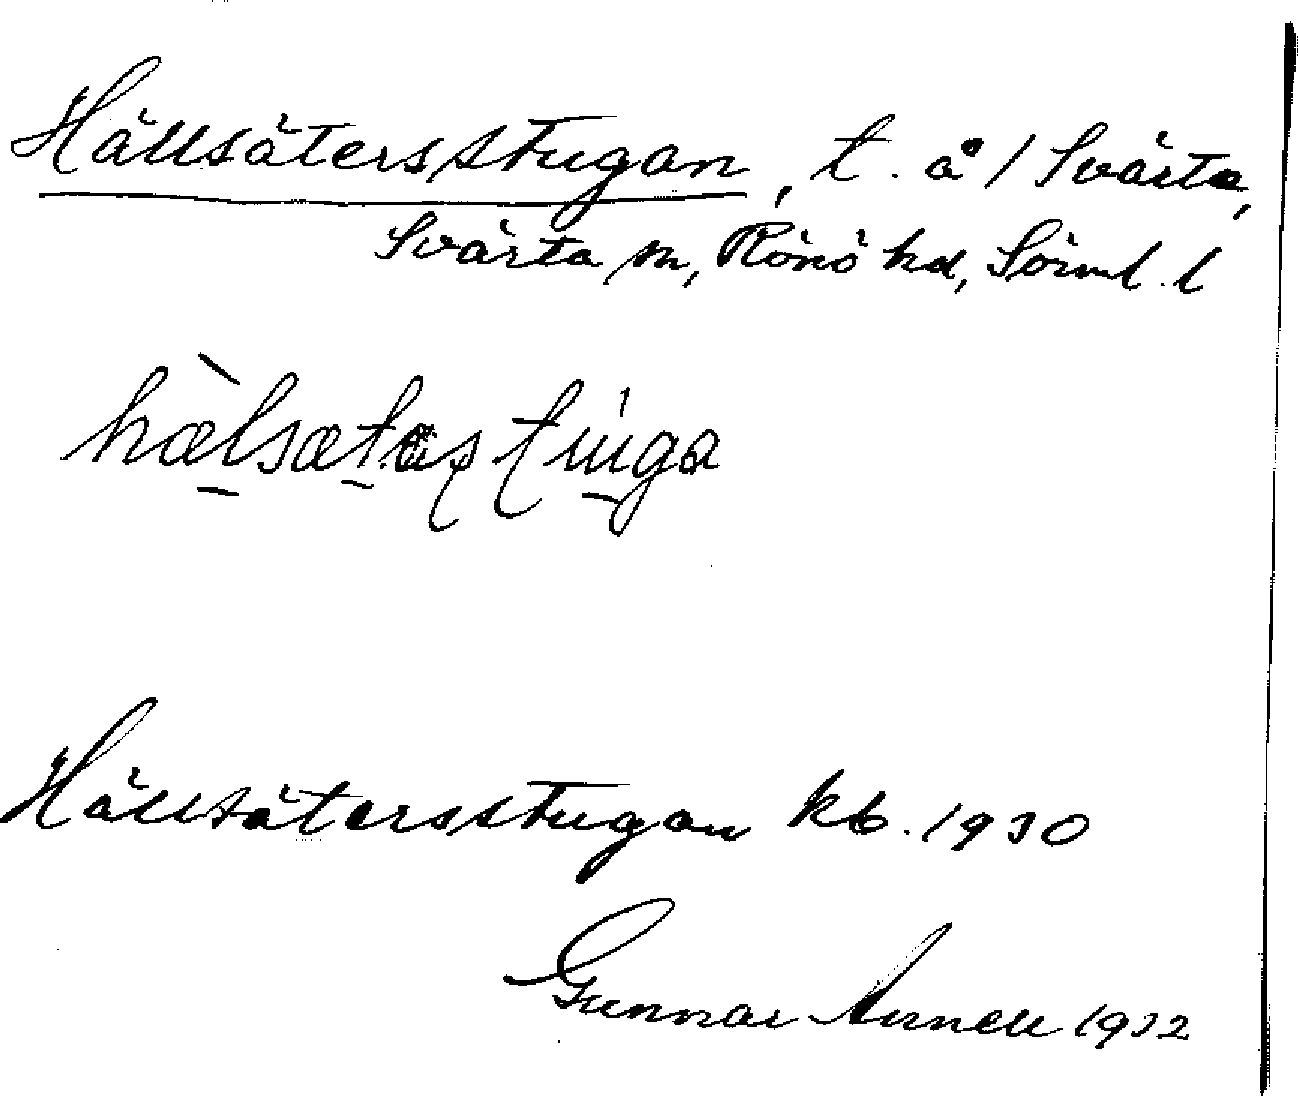 Hällsätersstugan, t. å / Svärta,
Svärta sn, Rönö hd, Sörml. l
hæ̀lsætas tuga
Hällsätersstugan kb. 1930
Gunnar Annell 1932